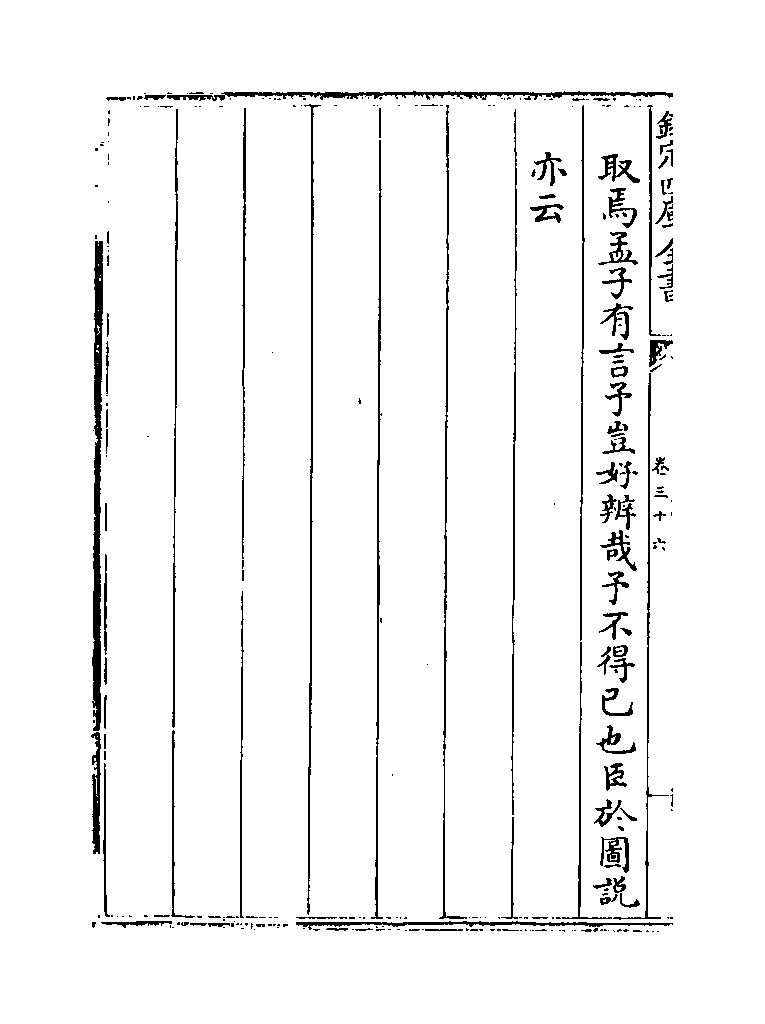 欽定四庫全書
卷三十六
取焉孟子有言予豈好辨哉予不得已也臣於圖説
亦云